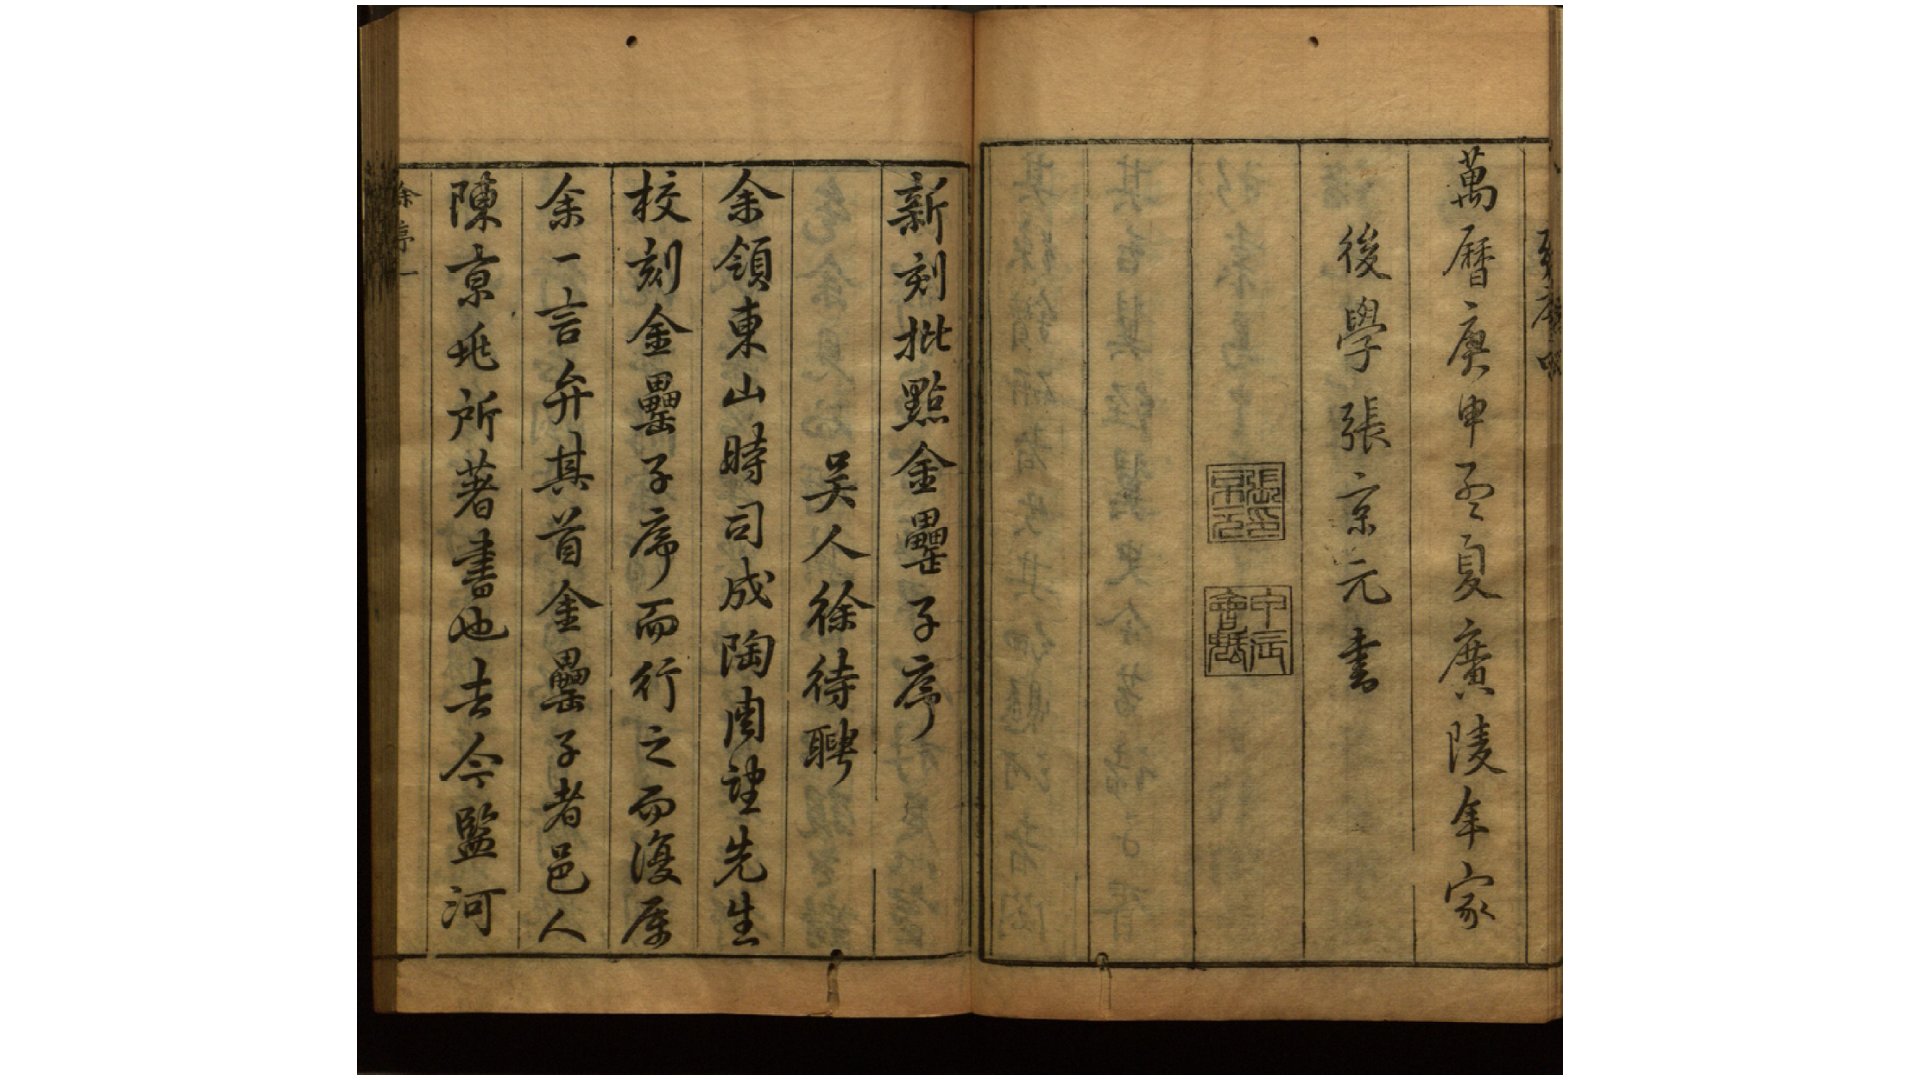 萬曆庚申孟夏廣陵年家
後學張京元書
張京元印
新刻批點金罍子序
吴人徐待聘
余領東山時司成陶周望先生
校刻金罍子序而行之而復屬
余一言弁其首金罍子者邑人
陳京兆所著書也去今監河
徐序一